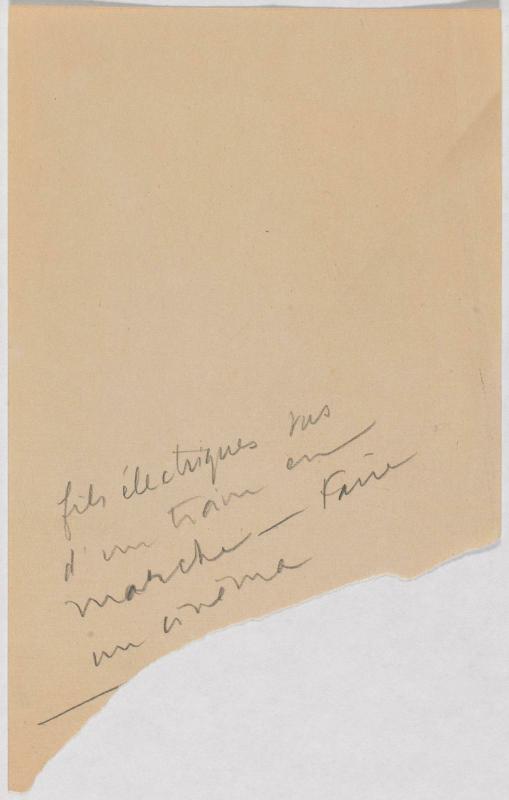 fils électriques vus
d'un train en
marche — Faire
un cinéma